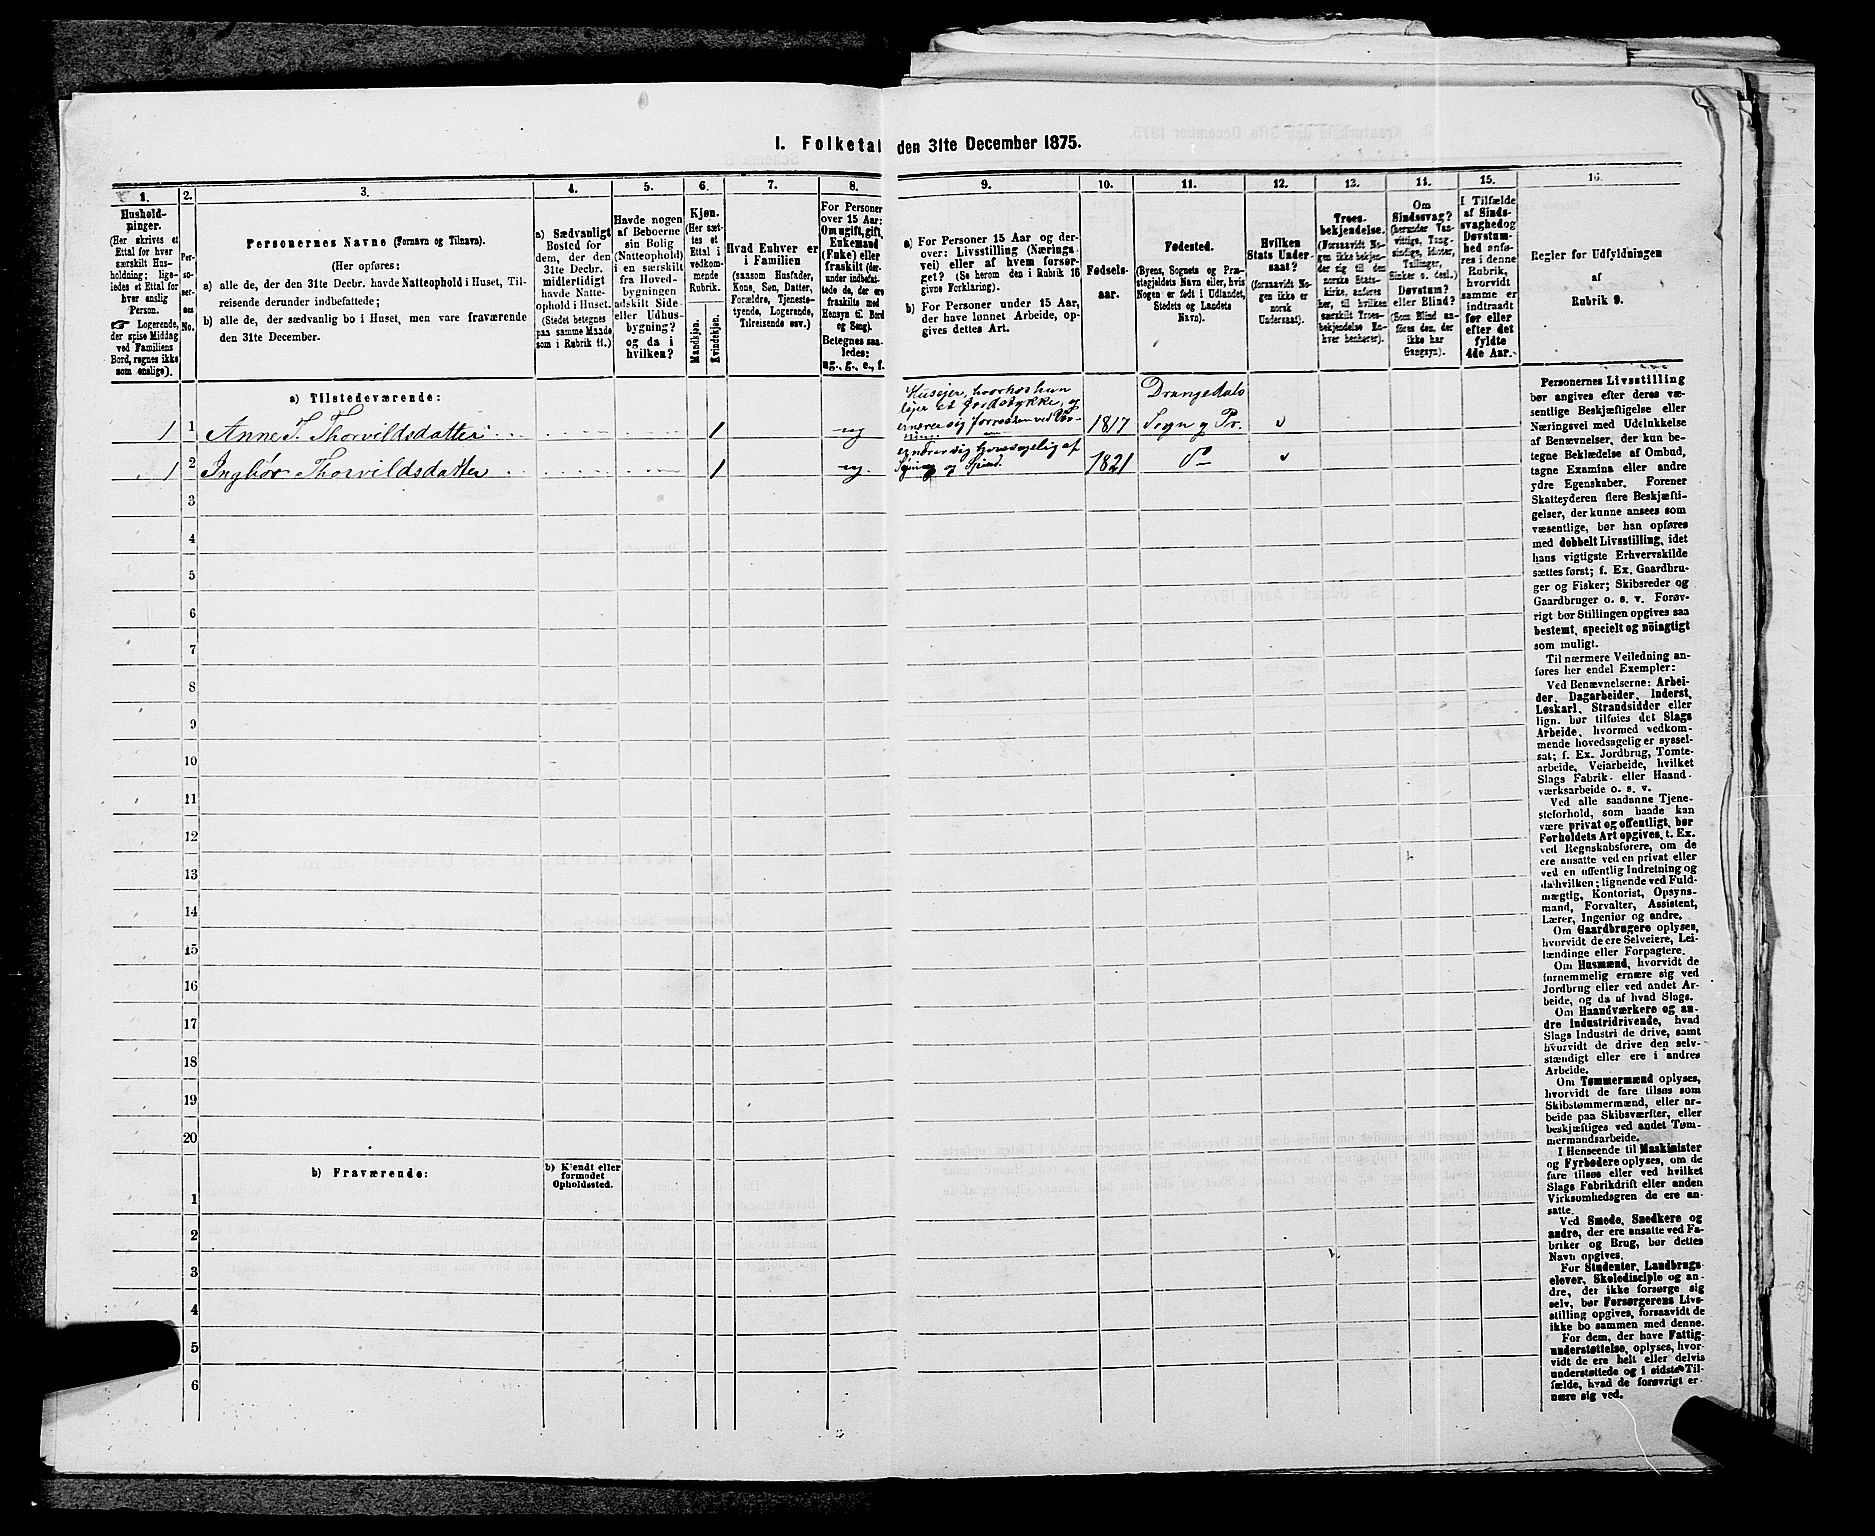 I. Folketal den 31te December 1875.
1.
Hushold-
ninger.
(Her skrives et
Ettal for hver
særskilt Hus-
holdning; lige-
ledes et Ettal for
hver enslig
Person.
☞ Logerende,
der spise Middag
ved Familiens
Bord, regnes ikke
som enslige).
2.
Per-
so-
ner-
nes
No.
3.
Personernes Navne (Fornavn og Tilnavn).
(Her opføres:
a) alle de, der den 31te Decbr. havde Natteophold i Huset, Til-
reisende derunder indbefattede;
b) alle de, der sædvanlig bo i Huset, men vare fraværende
den 31te December.
4.
a) Sædvanligt
Bosted for
dem, der den
31te Decbr.
midlertidigt
havde Natte-
ophold i Huset.
(Stedet betegnes
paa samme Maade
som i Rubrik 11.)
5.
Havde nogen
af Beboerne
sin Bolig
(Natteophold)
i en særskilt
fra Hoved-
bygningen
adskilt Side-
eller Udhus-
bygning?
og da i
hvilken?
6.
Kjøn.
(Her sæt-
tes et
Ettal i
vedkom-
mende
Rubrik.
Mandkjøn.
Kvindekjøn.
7.
Hvad Enhver er
i Familien
(saasom Husfader,
Kone, Søn, Datter,
Forældre, Tjeneste-
tyende, Logerende,
Tilreisende osv.)
8.
For Personer
over 15 Aar:
Om ugift, gift,
Enkemand
(Enke) eller
fraskilt (der-
under indbefat-
tede de, der ere
fraskilte med
Hensyn til Bord
og Seng).
Betegnes saa-
ledes:
ug., g., e., f.
9.
a) For Personer 15 Aar og der-
over: Livsstilling (Nærings-
vei) eller af hvem forsør-
get? (Se herom den i Rubrik 16
givne Forklaring).
b) For Personer under 15 Aar,
der have lønnet Arbeide, op-
gives dettes Art.
10.
Fødsels-
aar.
11.
Fødested.
(Byens, Sognets og Præ-
stegjeldets Navn eller, hvis
Nogen er født i Udlandet,
Stedets og Landets
Navn).
12.
Hvilken
Stats Under-
saat?
(forsaavidt No-
gen ikke er
norsk
Undersaat).
13.
Troes-
bekjendelse.
(Forsaavidt No-
gen ikke bekjen-
der sig til den
norske Stats-
kirke, anføres
her, til hvilken
særskilt Troes-
bekjendelse En-
hver henhører).
14.
Om
Sindssvag?
(herunder Van-
vittige, Tung-
sindige, Idioter,
Tullinger,
Sinker o. desl.)
Døvstum?
eller Blind?
(Som Blind an-
føres den, der
ikke har
Gangsyn).
15.
I Tilfælde
af Sinds-
svaghed og
Døvstum-
hed anfø-
res i denne
Rubrik,
hvorvidt
samme er
indtraadt
før eller
efter det
fyldte
4de Aar.
16.
Regler for Udfyldningen
af
Rubrik 9.
a) Tilstedeværende:
1 1 Anne T. Thorvildsdatter 1 ug Huseier, hvorhos hun
leier et Jordstykke, og
ernærer sig forresten ved 1817 Drangedals
Sogn og Pr.
1 2 Ingbør Thorvildsdatter 1 ug. ernærer sig hovedsagelig af
Syning og Spind. 1821 Do
3
4
5
6
7
8
9
10
11
12
13
14
15
16
17
18
19
20
b) Fraværende:
b) Kjendt eller
formodet
Opholdssted.
1
2
3
4
5
6
Personernes Livsstilling
bør angives efter deres væ-
sentlige Beskjæftigelse eller
Næringsvei med Udelukkelse
af Benævnelser, der kun be-
tegne Beklædelse af Ombud,
tagne Examina eller andre
ydre Egenskaber. Forener
Skatteyderen flere Beskjæfti-
gelser, der kunne ansees som
væsentlige, bør han opføres
med dobbelt Livsstilling, idet
hans vigtigste Erhvervskilde
sættes først; f. Ex. Gaardbru-
ger og Fisker; Skibsreder og
Gaardbruger o. s. v. Forøv-
rigt bør Stillingen opgives saa
bestemt, specielt og nöiagtigt
som muligt.
Til nærmere Veiledning an-
føres her endel Exempler:
Ved Benævnelserne: Arbei-
der, Dagarbeider, Inderst,
Løskarl, Strandsidder eller
lign. bør tilføies det Slags
Arbeide, hvormed vedkom-
mende hovedsagelig er syssel-
sat; f. Ex. Jordbrug, Tomte-
arbeide, Veiarbeide, hvilket
Slags Fabrik- eller Haand-
værksarbeide o. s. v.
Ved alle saadanne Tjene-
steforhold, som baade kan
være privat og offentligt, bør
Forholdets Art opgives, t. Ex.
ved Regnskabsførere, om de
ere ansatte ved en privat eller
ved en offentlig Indretning og
da hvilken; lignende ved Fuld-
mægtig, Kontorist, Opsyns-
mand, Forvalter, Assistent,
Lærer, Ingeniør og andre.
Om Gaardbrugere oplyses,
hvorvidt de ere Selveiere, Lei-
lændinge eller Forpagtere.
Om Husmænd, hvorvidt de
fornemmelig ernære sig ved
Jordbrug eller ved andet Ar-
beide, og da af hvad Slags.
Om Haandværkere og an-
dre Industridrivende, hvad
Slags Industri de drive, samt
hvorvidt de drive den selv-
stændigt eller ere i andres
Arbeide.
Om Tømmermænd oplyses,
hvorvidt de fare tilsøs som
Skibstømmermænd, eller ar-
beide paa Skibsværfter, eller
beskjæftiges ved andet Tøm-
mermandsarbeide.
I Henseende til Maskinister
og Fyrbødere oplyses, om de
fare tilsøs eller ved hvilket
Slags Fabrikdrift eller anden
Virksomhedsgren de ere an-
satte.
Ved Smede, Snedkere og
andre, der ere ansatte ved Fa-
briker og Brug, bør dettes
Navn opgives.
For Studenter, Landbrugs-
elever, Skoledisciple og an-
dre, der ikke forsørge sig
selv, bør Forsørgerens Livs-
stilling opgives, forsaavidt de
ikke bo sammen med denne.
For dem, der have Fattig-
understøttelse, oplyses, hvor-
vidt de ere helt eller delvis
understøttede og i sidste Til-
fælde, hvad de forøvrigt er-
nære sig ved.